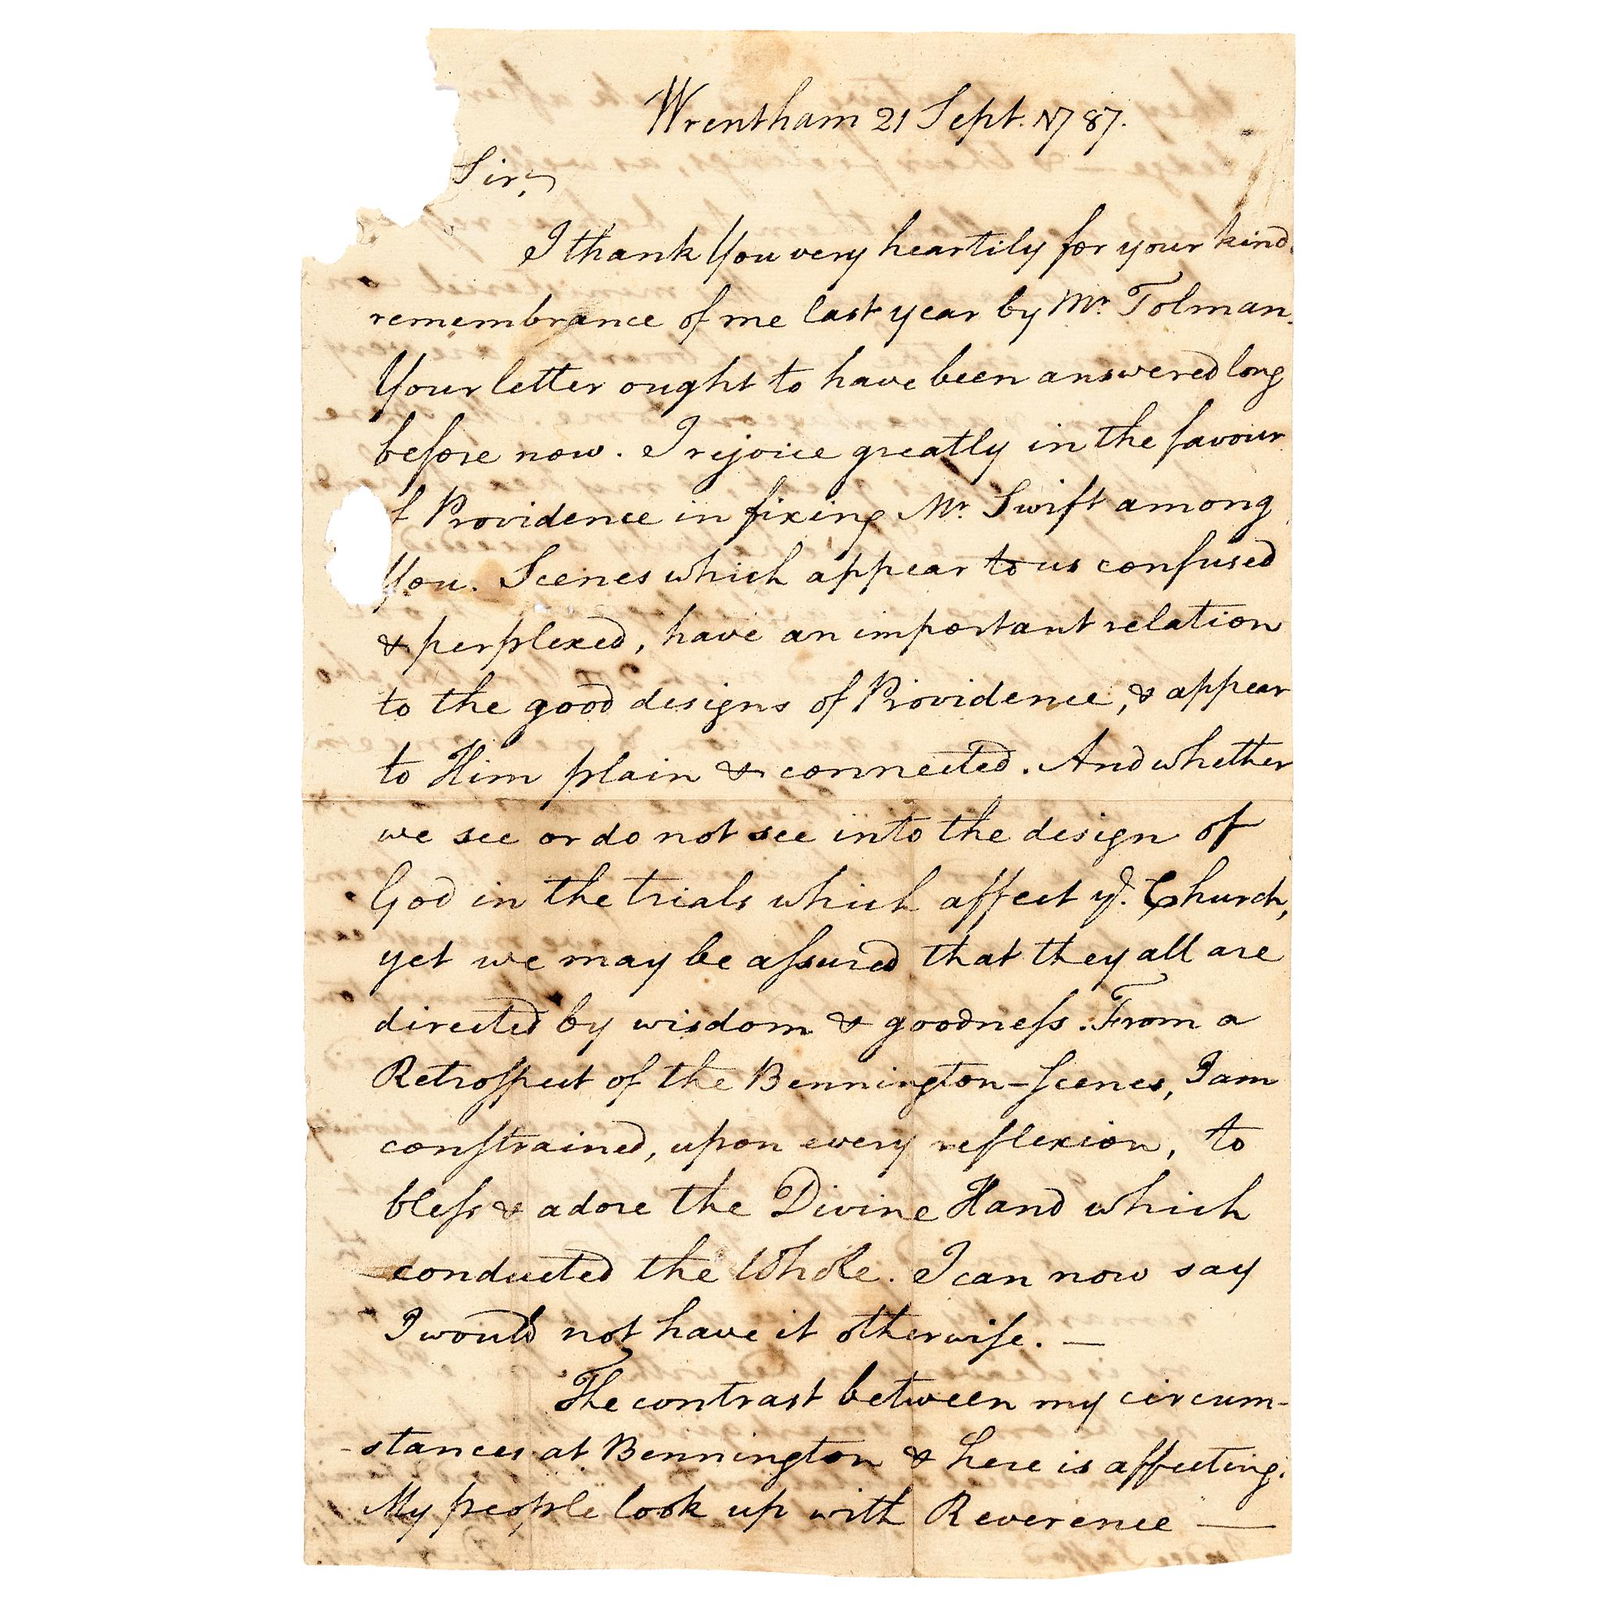 Wrentham 21 Sept. 1787.
Sir,
I thank You very heartily for your kind
remembrance of me last year by Mr. Tolman.
Your letter ought to have been answered long
before now. I rejoice greatly in the favour
f Providence in fixing Mr. Swift among
You. Scenes which appear to us confused
& perplexed, have an important relation
to the good designs of Providence, & appear
to Him plain & connected. And whether
we see or do not see into the design of
God in the trials which affect ye. Church,
yet we may be aſsured that they all are
directed by wisdom & goodneſs. From a
Retroſpect of the Bennington-ſcenes, I am
conſtrained, upon every reflexion, to
bleſs & adore the Divine Hand which
conducted the Whole. I can now say
I would not have it otherwiſe. —
The contrast between my circum-
-stances at Bennington & here is affecting.
My people look up with Reverence —